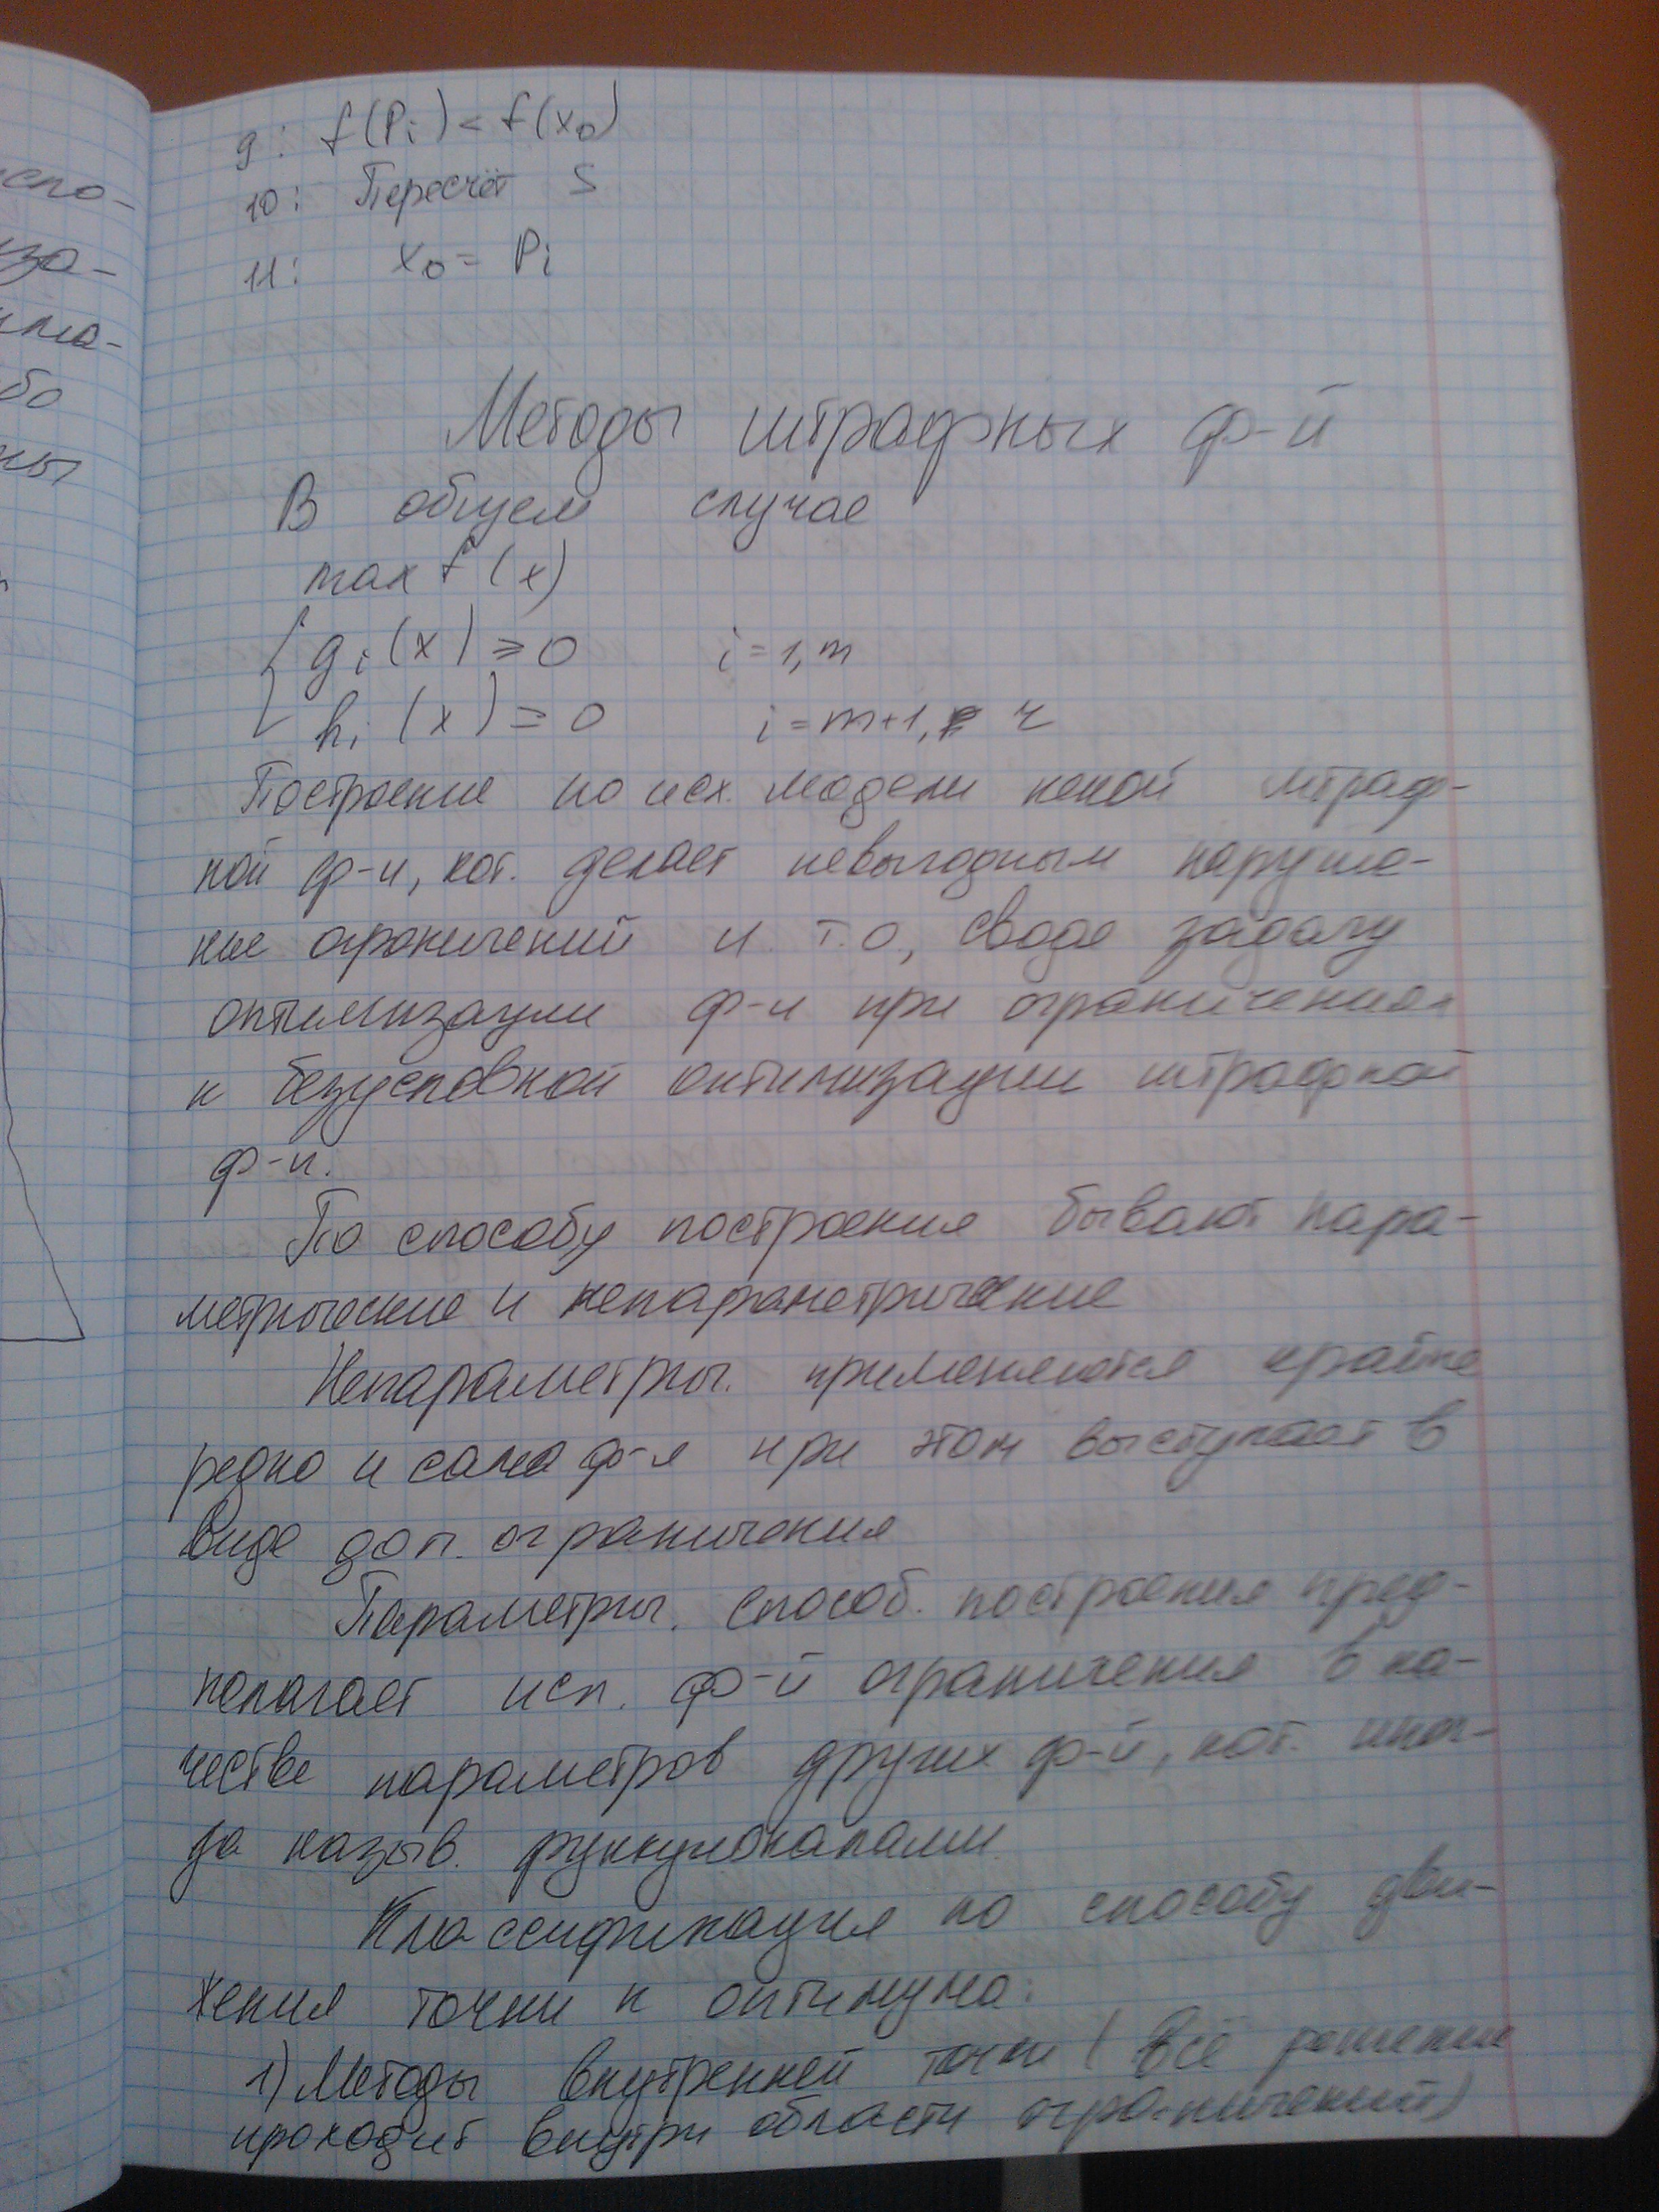 спо-
за-
ма-
бо
ны
9: f(Pi) < f(x0)
10: Пересчёт S
11: x0 = Pi
Методы штрафных ф-й
В общем случае
max f(x)
{ gi(x) ⩾ 0 i = 1,m
hi(x) = 0 i = m+1, r
Построение по исх. модели некой штраф-
ной ф-и, кот. делает невыгодным наруше-
ние ограничений и т.о, сводя задачу
оптимизации ф-и при ограничениях
к безусловной оптимизации штрафной
ф-и.
По способу построения бывают пара-
метрические и непараметрические
Непараметрич. применяются крайне
редко и сама ф-я при этом выступает в
виде доп. ограничения
Параметрич. способ. построения пред-
полагает исп. ф-й ограничения в ка-
честве параметров других ф-й, кот. иног-
да назыв. функционалами.
Классификация по способу дви-
жения точки к оптимума:
1) Методы внутренней точки (Всё решение
проходит внутри области ограничений)